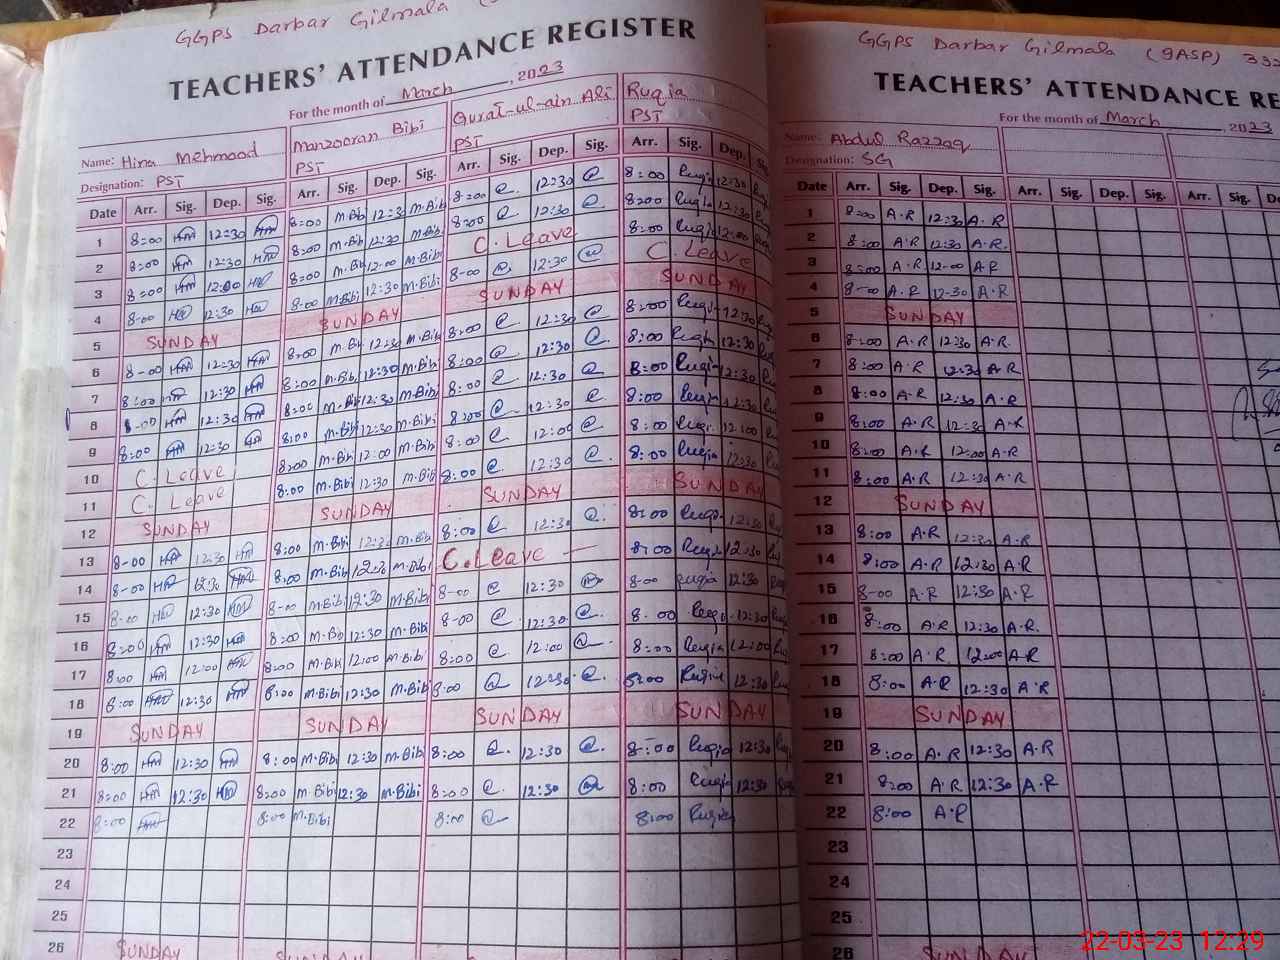 GGPS Darbar Gilmala
TEACHERS' ATTENDANCE REGISTER
For the month of March, 2023
Name: Hina Mehmood Manzooran Bibi Qurat-ul-ain Ali Ruqia
Designation: PST PST PST PST
Date Arr. Sig. Dep. Sig. Arr. Sig. Dep. Sig. Arr. Sig. Dep. Sig. Arr. Sig. Dep.
1 8:00 HM 12:30 HM 8:00 M.Bibi 12:30 M.Bibi 8:00 @ 12:30 @ 8:00 Ruqia 12:30
2 8:00 HM 12:30 HM 8:00 M.Bibi 12:30 M.Bibi 8:00 @ 12:30 @ 8:00 Ruqia 12:30
3 8:00 HM 12:00 HM 8:00 M.Bibi 12:00 M.Bibi C. Leave 8:00 Ruqia 12:00
4 8-00 HM 12:30 HM 8:00 M.Bibi 12:30 M.Bibi 8-00 @ 12:30 @ C. Leave
5 SUNDAY SUNDAY SUNDAY SUNDAY
6 8-00 HM 12:30 HM 8:00 M.Bibi 12:30 M.Bibi 8:00 @ 12:30 @ 8:00 Ruqia 12:30
7 8:00 HM 12:30 HM 8:00 M.Bibi 12:30 M.Bibi 8:00 @ 12:30 @ 8:00 Ruqia 12:30
8 8-00 HM 12:30 HM 8:00 M.Bibi 12:30 M.Bibi 8:00 @ 12:30 @ 8:00 Ruqia 12:30
9 8:00 HM 12:30 HM 8:00 M.Bibi 12:30 M.Bibi 8:00 @ 12:30 @ 8:00 Ruqia 12:30
10 C. Leave 8:00 M.Bibi 12:00 M.Bibi 8:00 @ 12:00 @ 8:00 Ruqia 12:00
11 C. Leave 8:00 M.Bibi 12:30 M.Bibi 8:00 @ 12:30 @ 8:00 Ruqia 12:30
12 SUNDAY SUNDAY SUNDAY SUNDAY
13 8-00 HM 12:30 HM 8:00 M.Bibi 12:30 M.Bibi 8:00 @ 12:30 @ 8:00 Ruqia 12:30
14 8-00 HM 12:30 HM 8:00 M.Bibi 12:30 M.Bibi C. Leave 8:00 Ruqia 12:30
15 8-00 HM 12:30 HM 8-00 M.Bibi 12:30 M.Bibi 8-00 @ 12:30 @ 8-00 Ruqia 12:30
16 8:00 HM 12:30 HM 8:00 M.Bibi 12:30 M.Bibi 8-00 @ 12:30 @ 8.00 Ruqia 12:30
17 8:00 HM 12:00 HM 8:00 M.Bibi 12:00 M.Bibi 8:00 @ 12:00 @ 8:00 Ruqia 12:00
18 8:00 HM 12:30 HM 8:00 M.Bibi 12:30 M.Bibi 8:00 @ 12:30 @ 8:00 Ruqia 12:30
19 SUNDAY SUNDAY SUNDAY SUNDAY
20 8:00 HM 12:30 HM 8:00 M.Bibi 12:30 M.Bibi 8:00 @ 12:30 @ 8:00 Ruqia 12:30
21 8:00 HM 12:30 HM 8:00 M.Bibi 12:30 M.Bibi 8:00 @ 12:30 @ 8:00 Ruqia 12:30
22 8:00 HM 8:00 M.Bibi 8:00 @ 8:00 Ruqia
23
24
25
26 SUNDAY SUNDAY
GGPS Darbar Gilmala (9ASP) 332
TEACHERS' ATTENDANCE RE
For the month of March, 2023
Name: Abdul Razzaq
Designation: SG
Date Arr. Sig. Dep. Sig. Arr. Sig. Dep. Sig. Arr. Sig. De
1 8:00 A.R 12:30 A.R
2 8:00 A.R 12:30 A.R.
3 8:00 A.R 12-00 A.R
4 8-00 A.R 12-30 A.R
5 SUNDAY
6 8:00 A.R 12:30 A.R.
7 8:00 A.R 12:30 A.R
8 8:00 A.R 12:30 A.R
9 8:00 A.R 12:30 A.R
10 8:00 A.R 12:00 A.R
11 8:00 A.R 12:30 A.R
12 SUNDAY
13 8:00 A.R 12:30 A.R
14 8:00 A.R 12:30 A.R
15 8-00 A.R 12:30 A.R
16 8:00 A.R 12:30 A.R.
17 8:00 A.R 12:00 A.R
18 8:00 A.R 12:30 A.R
19 SUNDAY
20 8:00 A.R 12:30 A.R
21 8:00 A.R 12:30 A.R
22 8:00 A.R
23
24
25
26
22-03-23 12:29